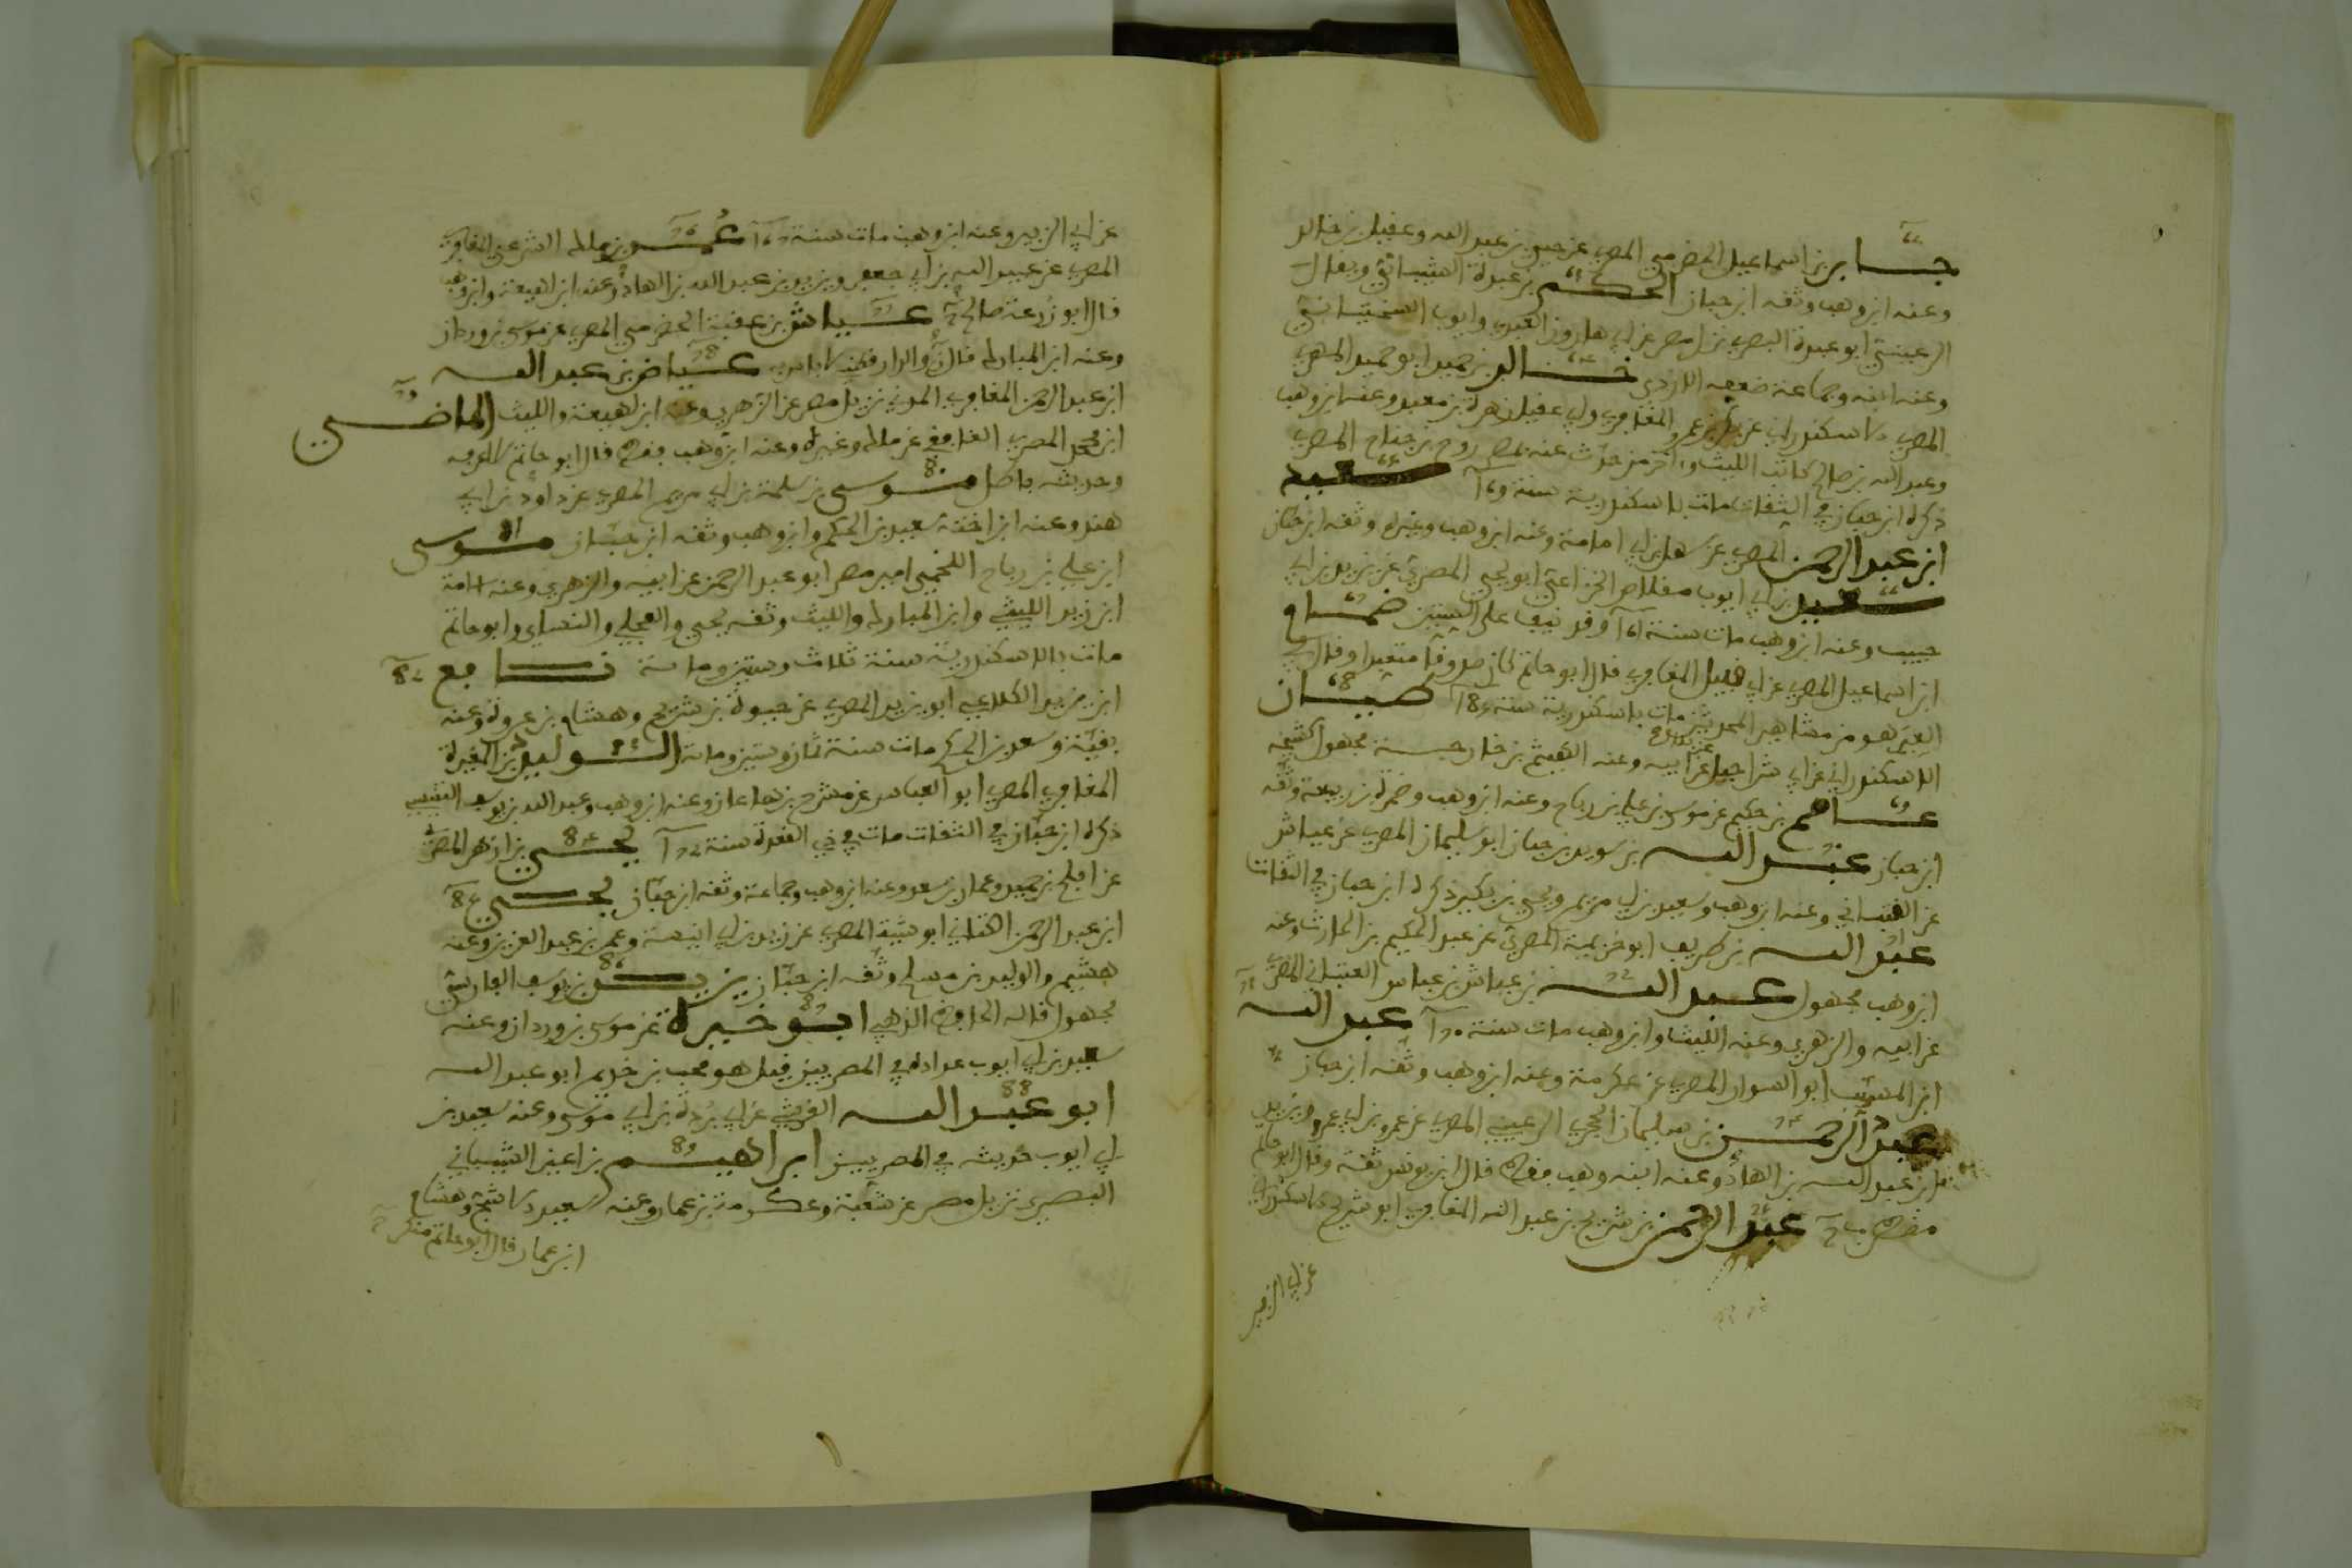 جابر بن اسماعيل الحضرمي المصري عن حيي بن عبد الله وعقيل بن خالد
وعنه ابن وهب وثقه ابن حبان الحكم بن عبدة الشيباني ويقال
الرعيني ابو عبدة البصري نزل مصر عن ابي هارون العبدي وايوب السختياني
وعنه ابنه وجماعة ضعفه الازدي خالد بن حميد ابو حميد المهري
المصري الاسكندراني عن بكر بن عمرو المعافري وابي عقيل زهرة بن معبد وعنه ابن وهب
وعبد الله بن صالح كاتب الليث وآخر من حدث عنه بمصر روح بن جناح المصري
ذكره ابن حبان في الثقات مات بالاسكندرية سنة 169 سعيد
ابن عبد الرحمن المصري عن سهل بن ابي امامة وعنه ابن وهب وغيره وثقه ابن حبان
سعيد بن ابي ايوب مقلاص الخزاعي ابو يحيى المصري عن يزيد بن ابي
حبيب وعنه ابن وهب مات سنة 161 وقد نيف على الستين ضمام
ابن اسماعيل المصري عن ابي قبيل المعافري قال ابو حاتم كان صدوقا متعبدا وقال
مات بالاسكندرية سنة 185 ضبيان
الاسكندراني عن ابي شراحيل عن ابيه وعنه الهيثم بن خارجة مجهول كشيخه
عاصم بن حكيم عن موسى بن علي بن رباح وعنه ابن وهب وضمرة بن ربيعة وثقه
ابن حبان عبد الله بن سويد بن حيان ابو سليمان المصري عن عياش
عن القتباني وعنه ابن وهب وسعيد بن ابي مريم ويحيى بن بكير ذكره ابن حبان في الثقات
عبد الله بن طريف ابو خزيمة المصري عن عبد الكريم بن الحارث وعنه
ابن وهب مجهول عبد الله بن عياش بن عباس القتباني المصري
عن ابيه والزهري وعنه الليث وابن وهب مات سنة 170 عبد الله
ابن المسيب ابو السوار المصري عن عكرمة وعنه ابن وهب وثقه ابن حبان
عبد الرحمن بن سليمان الحجري الرعيني المصري عن عمرو بن ابي عمرو ويزيد
بن عبد الله بن الهاد وعنه ابنه وهب فقط قال ابن يونس ثقة وقال ابو حاتم
عبد الرحمن بن شريح بن عبد الله المعافري ابو شريح الاسكندراني
عن ابي الزبير
عن ابي الزبير وعنه ابن وهب مات سنة 167 عمر بن مالك الشرعبي المعافري
المصري عن عبيد الله بن ابي جعفر ويزيد بن عبد الله بن الهاد وعنه ابن لهيعة وابن وهب
قال ابو زرعة صالح عياش بن عقبة الحضرمي المصري عن موسى بن وردان
وعنه ابن المبارك قال الدارقطني لا باس به عياض بن عبد الله
ابن عبد الرحمن المعافري المدني نزيل مصر عن الزهري وعنه ابن لهيعة والليث الماضي
ابن محمد المصري الغافقي عن مالك وغيره وعنه ابن وهب فقط قال ابو حاتم لا اعرفه
وحديثه باطل موسى بن سلمة بن ابي مريم المصري عن داود بن ابي
هند وعنه ابن اخته سعيد بن الحكم وابن وهب وثقه ابن حبان موسى
ابن علي بن رباح اللخمي امير مصر ابو عبد الرحمن عن ابيه والزهري وعنه اسامة
ابن زيد الليثي وابن المبارك والليث وثقه يحيى والعجلي والنسائي وابو حاتم
مات بالاسكندرية سنة ثلاث وستين ومائة نافع
ابن يزيد الكلاعي ابو يزيد المصري عن حيوة بن شريح وهشام بن عروة وعنه
بقية وسعيد بن الحكم مات سنة ثمان وستين ومائة الوليد بن المغيرة
المعافري المصري ابو العباس عن مشرح بن هاعان وعنه ابن وهب وعبد الله بن يوسف التنيسي
ذكره ابن حبان في الثقات مات في ذي القعدة سنة 172 يحيى بن ازهر المصري
عن افلح بن حميد وعمار بن سعد وعنه ابن وهب وجماعة وثقه ابن حبان يحيى
ابن عبد الرحمن الكناني ابو شيبة المصري عن زيد بن ابي انيسة وعمر بن عبد العزيز وعنه
هشيم والوليد بن مسلم وثقه ابن حبان يزيد بن يوسف الفارسي
مجهول قاله الحافظ الذهبي ابو خيرة عن موسى بن وردان وعنه
سعيد بن ابي ايوب عداده في المصريين قيل هو محب بن حذيم ابو عبد الله
ابو عبد الله القرشي عن ابي بردة بن ابي موسى وعنه سعيد بن
ابي ايوب حديثه في المصريين ابراهيم بن اعين الشيباني
البصري نزيل مصر عن شعبة وعكرمة بن عمار وعنه سعيد الاشج وهشام
ابن عمار قال ابو حاتم منكر